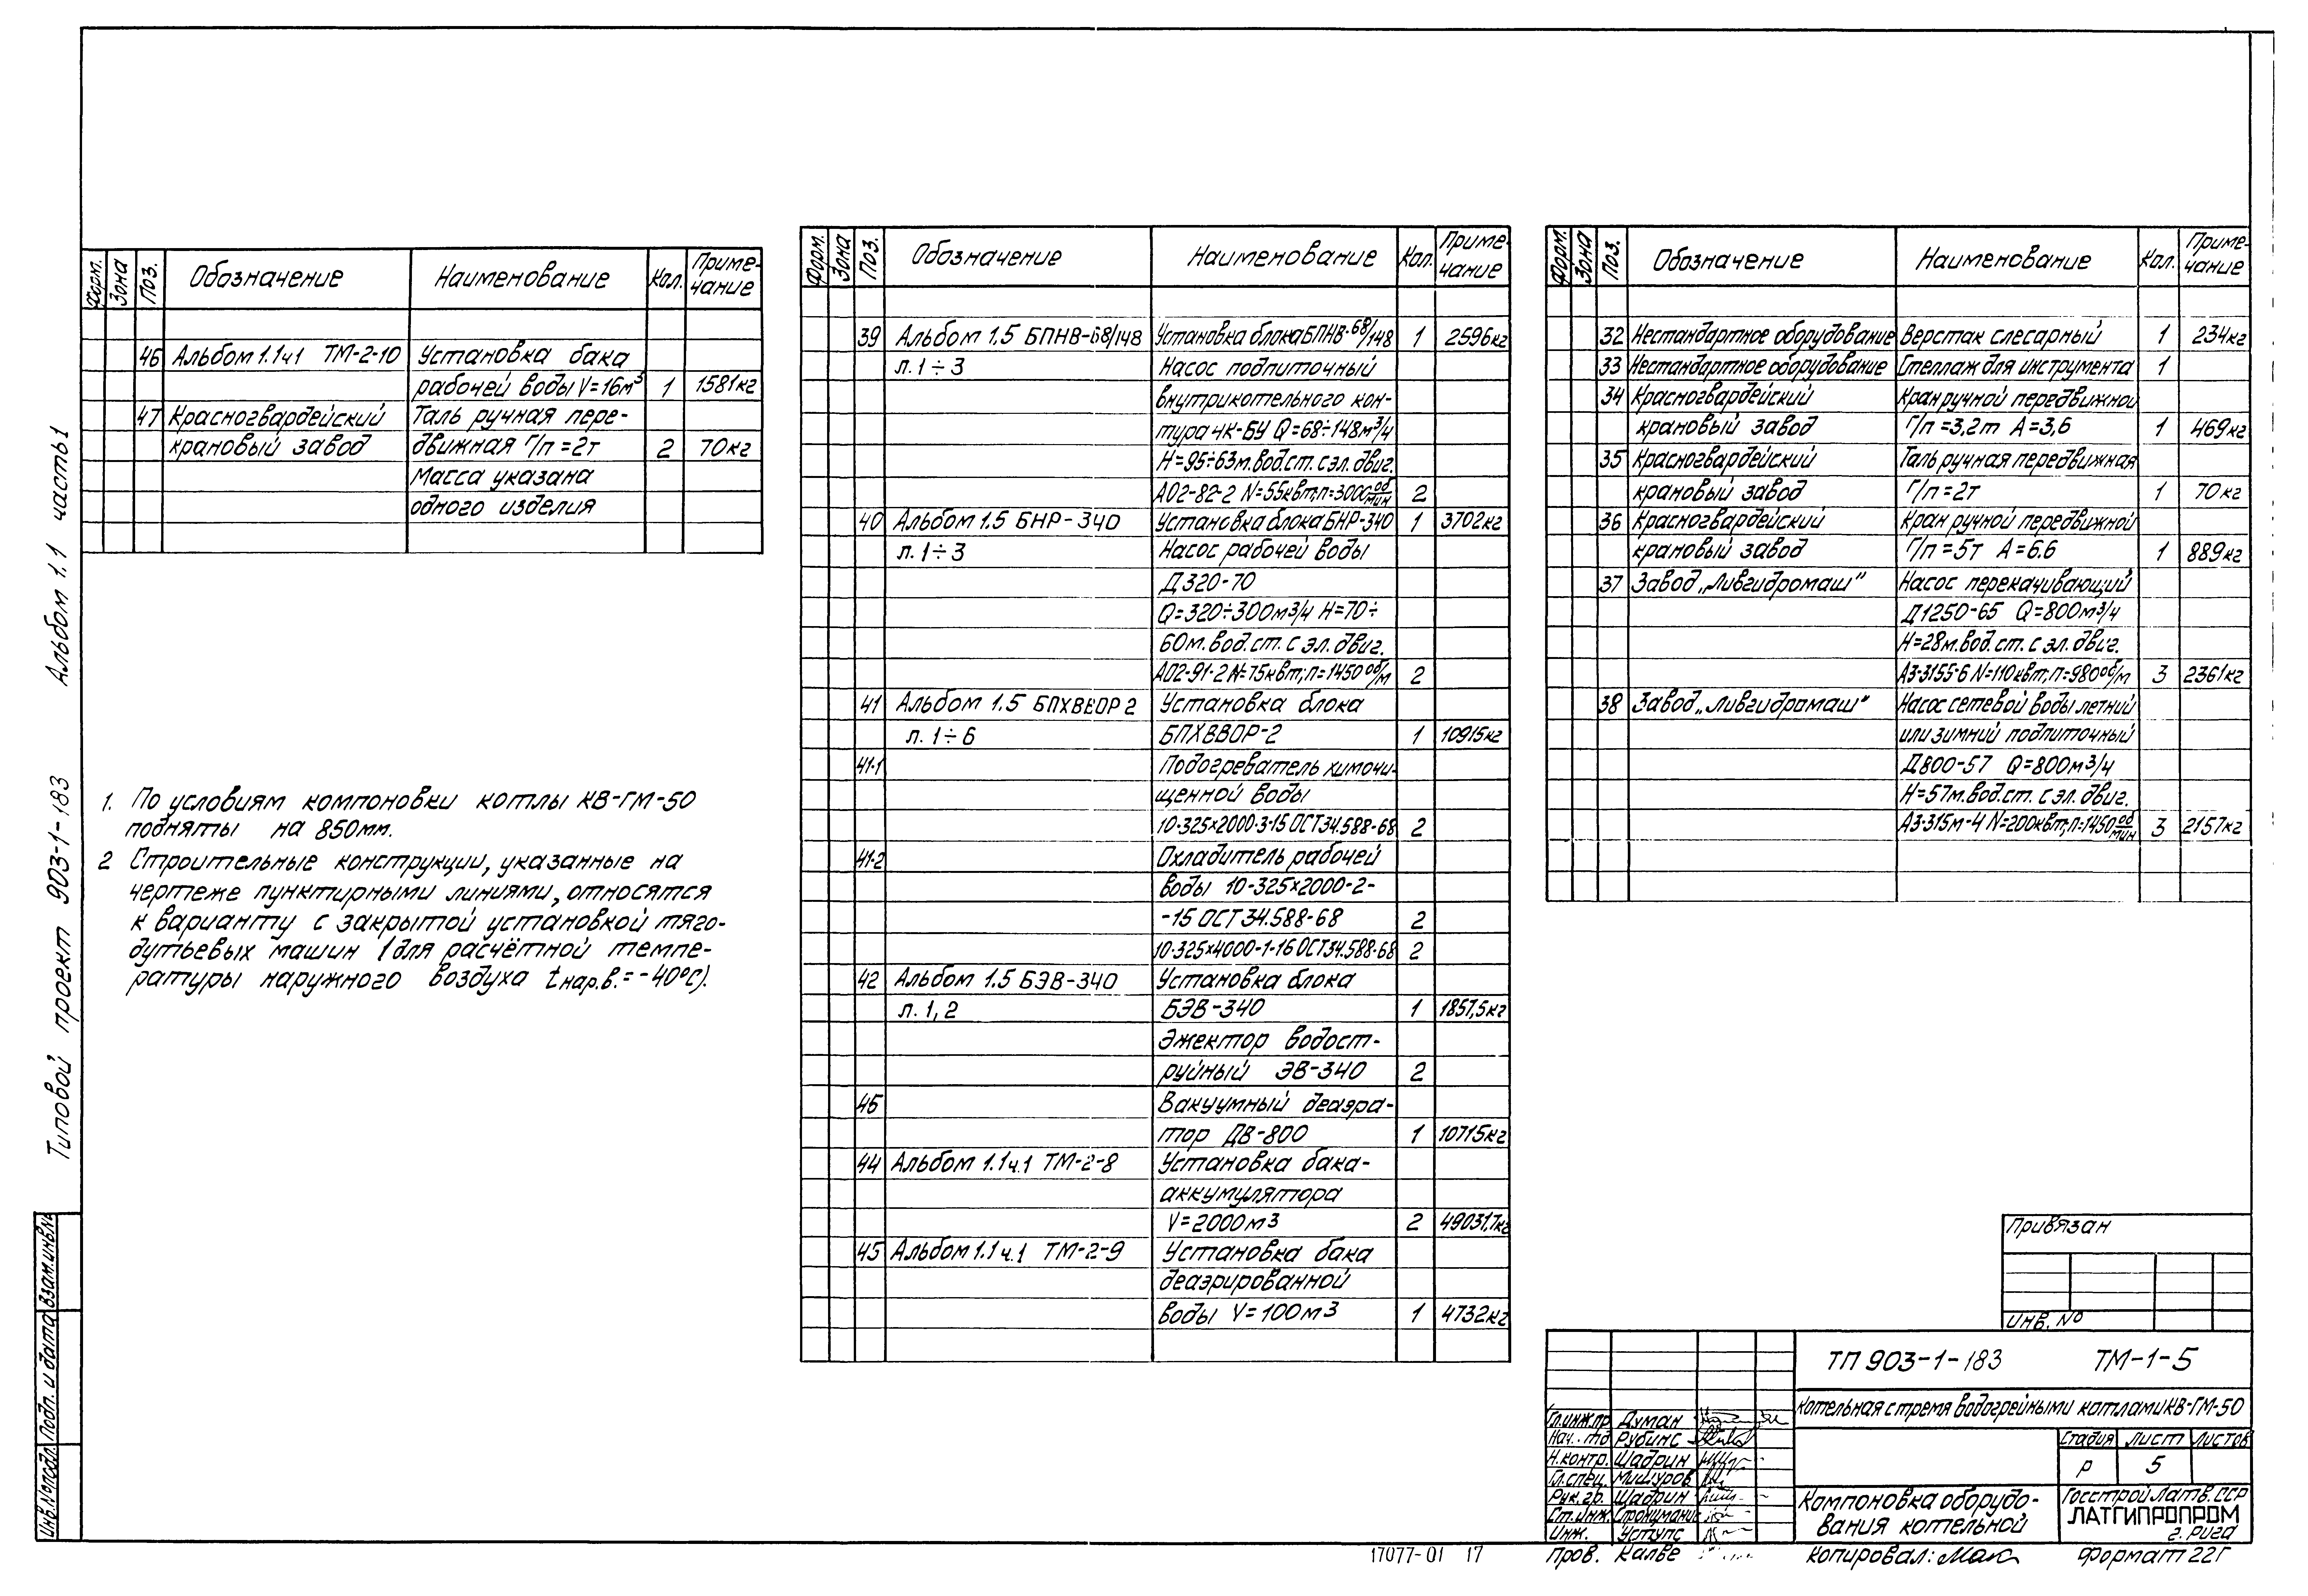 Типовой проект 903-1-183 Альбом 1.1 часть 1
Форм. Зона Поз. Обозначение Наименование Кол. Приме-
чание
46 Альбом 1.1ч1 ТМ-2-10 Установка бака
рабочей воды V=16м³ 1 1581кг
47 Красногвардейский Таль ручная пере-
крановый завод движная Г/п=2т 2 70кг
Масса указана
одного изделия
1. По условиям компоновки котлы КВ-ГМ-50
подняты на 850мм.
2 Строительные конструкции, указанные на
чертеже пунктирными линиями, относятся
к варианту с закрытой установкой тяго-
дутьевых машин (для расчётной темпе-
ратуры наружного воздуха tнар.в.=-40°С).
Форм. Зона Поз. Обозначение Наименование Кол. Приме-
чание
39 Альбом 1.5 БПНВ-68/148 Установка блока БПНВ-68/148 1 2596кг
л. 1÷3 Насос подпиточный
внутрикотельного кон-
тура 4К-6У Q=68÷148м³/ч
Н=95÷63м.вод.ст. с эл. двиг.
АО2-82-2 N=55квт, п=3000 об/мин 2
40 Альбом 1.5 БНР-340 Установка блока БНР-340 1 3702кг
л. 1÷3 Насос рабочей воды
Д320-70
Q=320÷300м3/ч Н=70÷
60м.вод.ст. с эл. двиг.
АО2-91-2 N=75квт; п=1450 об/м 2
41 Альбом 1.5 БПХВВОР 2 Установка блока
л. 1÷6 БПХВВОР-2 1 10915кг
41-1 Подогреватель химочи-
щенной воды
10-325х2000-3-15 ОСТ34.588-68 2
41-2 Охладитель рабочей
воды 10-325х2000-2-
-15 ОСТ 34.588-68 2
10-325х4000-1-16 ОСТ34.588-68 2
42 Альбом 1.5 БЭВ-340 Установка блока
л. 1, 2 БЭВ-340 1 1857,5кг
Эжектор водост-
руйный ЭВ-340 2
46 Вакуумный деаэра-
тор ДВ-800 1 10715кг
44 Альбом 1.1ч.1 ТМ-2-8 Установка бака-
аккумулятора
V=2000м3 2 49031,7кг
45 Альбом 1.1ч.1 ТМ-2-9 Установка бака
деаэрированной
воды V=100м3 1 4732кг
Форм. Зона Поз. Обозначение Наименование Кол. Приме-
чание
32 Нестандартное оборудование Верстак слесарный 1 234кг
33 Нестандартное оборудование Стеллаж для инструмента 1
34 Красногвардейский Кран ручной передвижной
крановый завод Г/п=3,2т А=3,6 1 469кг
35 Красногвардейский Таль ручная передвижная
крановый завод Г/п=2т 1 70кг
36 Красногвардейский Кран ручной передвижной
крановый завод Г/п=5т А=6.6 1 889кг
37 Завод „Ливгидромаш" Насос перекачивающий
Д1250-65 Q=800м3/ч
Н=28м.вод.ст. с эл. двиг.
А3-3155-6 N=110квт, п=980об/м 3 2361кг
38 Завод „Ливгидромаш" Насос сетевой воды летний
или зимний подпиточный
Д800-57 Q=800м3/ч
Н=57м.вод.ст. с эл. двиг.
А3-315м-4 N=200квт, п=1450 об/мин 3 2157кг
Привязан
Инв. №
ТП 903-1-183 ТМ-1-5
Котельная с тремя водогрейными котлами КВ-ГМ-50
Стадия Лист Листов
Р 5
Гл.инж.пр Думан
Нач. тд Рубинс
Н.контр. Шадрин
Гл.спец. Мишуров
Рук. гр. Шадрин
Ст.инж.
Инж. Уступс
Пров. Калве
Компоновка оборудо-
вания котельной
Госстрой Латв.ССР
ЛАТГИПРОПРОМ
г. Рига
17077-01 17
Копировал: Мак
Формат 22Г
Инв.№подл. Подп. и дата Взам.инв.№